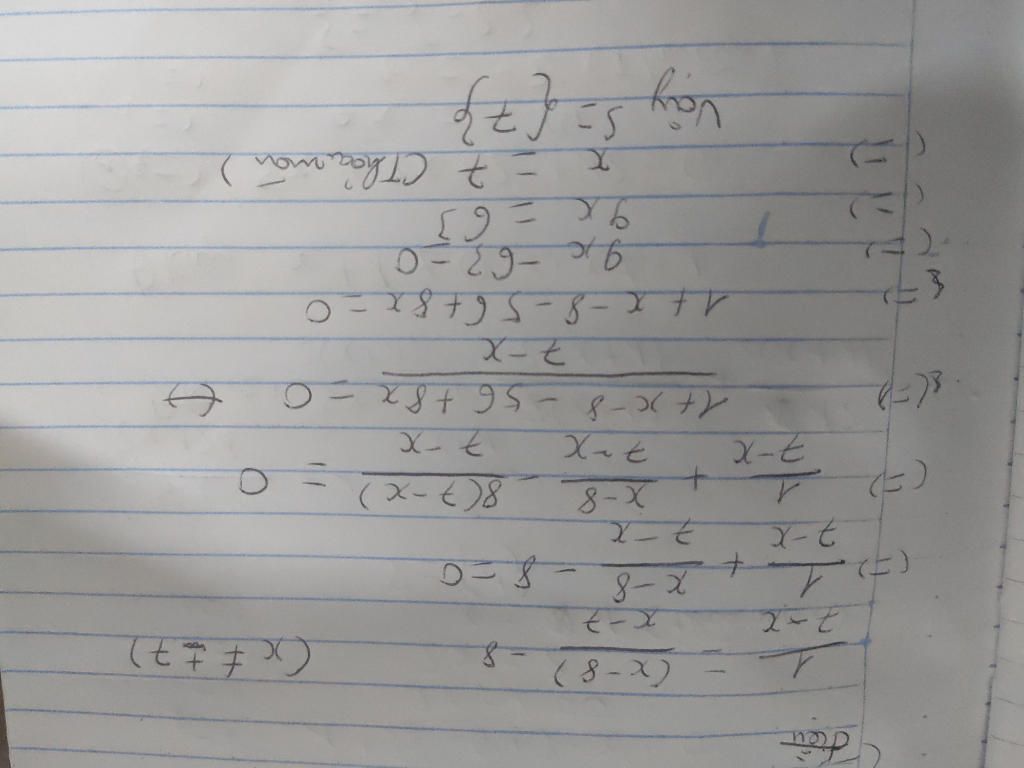 1/(7-x) - (x-8)/(x-7) - 8 (x ≠ ±7)
(=) 1/(7-x) + (x-8)/(7-x) - 8 = 0
(=) 1/(7-x) + (x-8)/(7-x) - 8(7-x)/(7-x) = 0
(=) (1+x-8-56+8x)/(7-x) = 0
(=) 1+x-8-56+8x=0
(=) 9x-63=0
(=) 9x = 63
(=) x = 7 (Thỏa mãn)
Vậy S = {7}